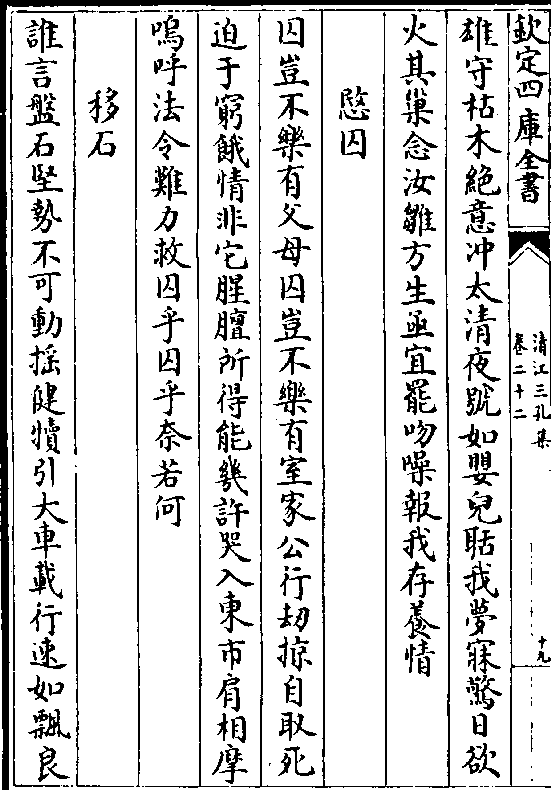 欽定四庫全書
清江三孔集
卷二十二
十九
雄守枯木絶意冲太清夜號如嬰兒聒我夢寐驚日欲
火其巢念汝雛方生亟宜罷吻噪報我存養情
愍囚
囚豈不樂有父母囚豈不樂有室家公行刼掠自取死
迫于窮餓情非它腥膻所得能幾許哭入東市肩相摩
嗚呼法令難力救囚乎囚乎奈若何
移石
誰言盤石堅勢不可動揺健犢引大車載行速如飄良